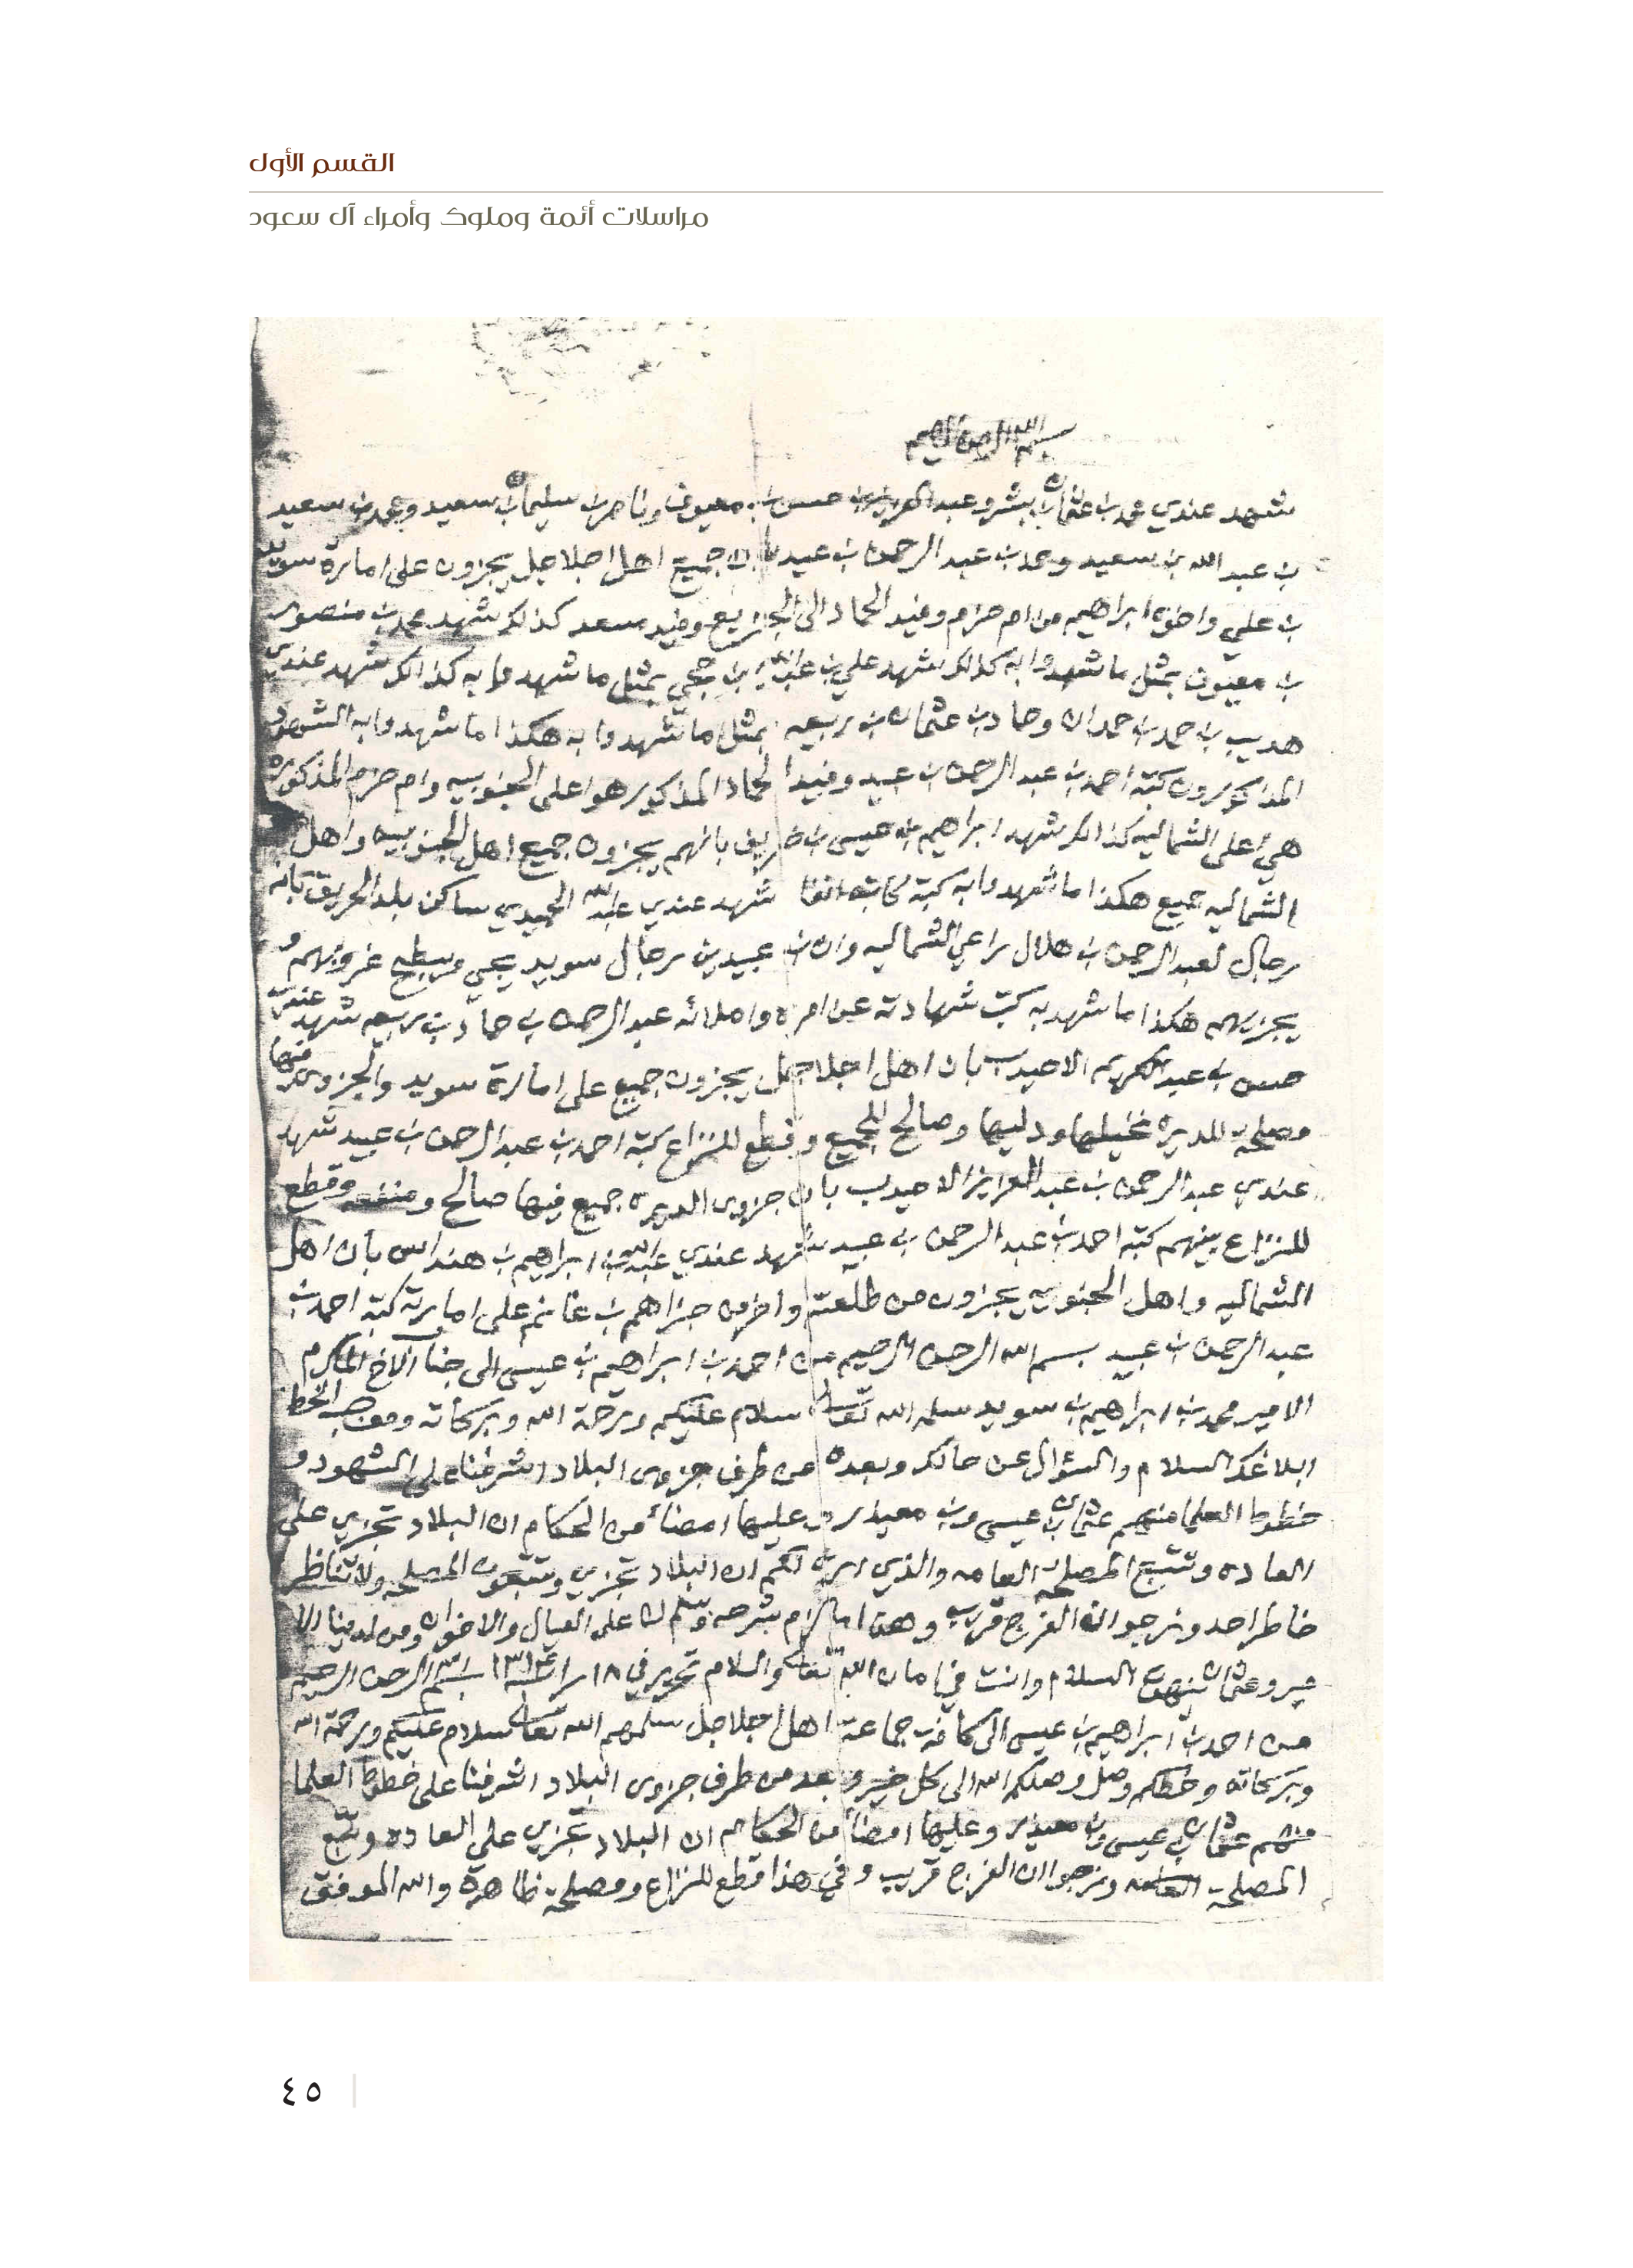 القسم الأول
مراسلات أئمة وملوك وأمراء آل سعود
بسم الله الرحمن الرحيم
شهد عندي محمد بن عثمان بن بشر وعبد العزيز بن حسن بن معيوف وناصر بن سليمان بن سعيد ومحمد بن سعيد
بن عبد الله بن سعيد وحمد بن عبد الرحمن بن عبيد بان جميع اهل اجلاجل يجزون على امارة سويد
بن علي واخوه ابراهيم من ام حزم وفيد الحماد الى وفيد سعد كذلك شهد محمد بن منصور
بن معيوف بمثل ما شهدوا به كذالك شهد علي بن عبد الله بن حجي بمثل ما شهدوا به كذالك شهد عندي
هديب بن حمد بن حمدان وحماد بن عثمان بن ربيعه بمثل ما شهدوا به هكذا ما شهدوا به الشهود
المذكورون كتبه احمد بن عبد الرحمن بن عبيد وفيد الحماد المذكور هو اعلى الجنوبيه وام حزم المذكوره
هي اعلى الشماليه كذالك شهد ابراهيم بن عيسى بن بانهم يجزون جميع اهل الجنوبيه واهل
الشماليه جميع هكذا ما شهدوا به كتبه كاتبه شهد عندي عبد الله الحميدي ساكن بلد الحريق بانه
رجال لعبد الرحمن بن هلال راعي الشماليه وان بن عبيدين رجال سويد يجي غروبهم و
يجزيهم هكذا ما شهد به كتب شهادته عن امره واملائه عبد الرحمن بن حماد بن ربيعه شهد عندي
حسن بن عبد الكريم الاحيدب بان اهل اجلاجل يجزون جميع على امارة سويد والجزوى فيها
مصلحة للديره نخيلها ودليها وصالح للجميع وقطع للنزاع كتبه احمد بن عبد الرحمن بن عبيد شهد
عندي عبد الرحمن بن عبد العزيز الاحيدب بان جزوى الديره جميع فيها صالح ومنفعه وقطع
للنزاع بينهم كتبه احمد بن عبد الرحمن بن عبيد شهد عندي عبد الله بن ابراهيم بن هنداس بان اهل
الشماليه واهل الجنوبيه يجزون من طلعته واخرمن جزاهم بن غانم على امارته كتبه احمد بن
عبد الرحمن بن عبيد بسم الله الرحمن الرحيم من احمد بن ابراهيم بن عيسى الى جناب الاخ المكرم
الامير محمد بن ابراهيم بن سويد سلمه الله تعالى سلام عليكم ورحمة الله وبركاته وموجب الخط
ابلاغك السلام والسؤال عن حالك وبعده من طرف جزوى البلاد اشرفنا على الشهود و
خطوط العلما منهم عثمان بن عيسى وبن معيذر وعليها امضاء من الحكام ان البلاد تجزي على
العاده وتتبع المصلحة العامه والذي اره لكم ان البلاد تجزي وتتبعون المصلحه ولا تناظر
خاطر احد ونرجو ان الفرج قريب وهذا ما لزم بشرحه وسلم لنا على العيال والاخوان ومن لدينا الا
مير وعثمان ينهون السلام وانت في امان الله تعالى والسلام تحرير في ١٨ بسم الله الرحمن الرحيم
من احمد بن ابراهيم بن عيسى الى كافة جماعة اهل اجلاجل سلمهم الله تعالى سلام عليكم ورحمة الله
وبركاته وخطكم وصل وصلكم الله الى كل خير وبعد من طرف جزوى البلاد اشرفنا على خطوط العلما
منهم عثمان بن عيسى وبن معيذر وعليها امضاء من الحكام ان البلاد تجزي على العاده وتتبع
المصلحة العامه ونرجو ان الفرج قريب وفي هذا قطع للنزاع ومصلحة ظاهرة والله الموفق
٤٥